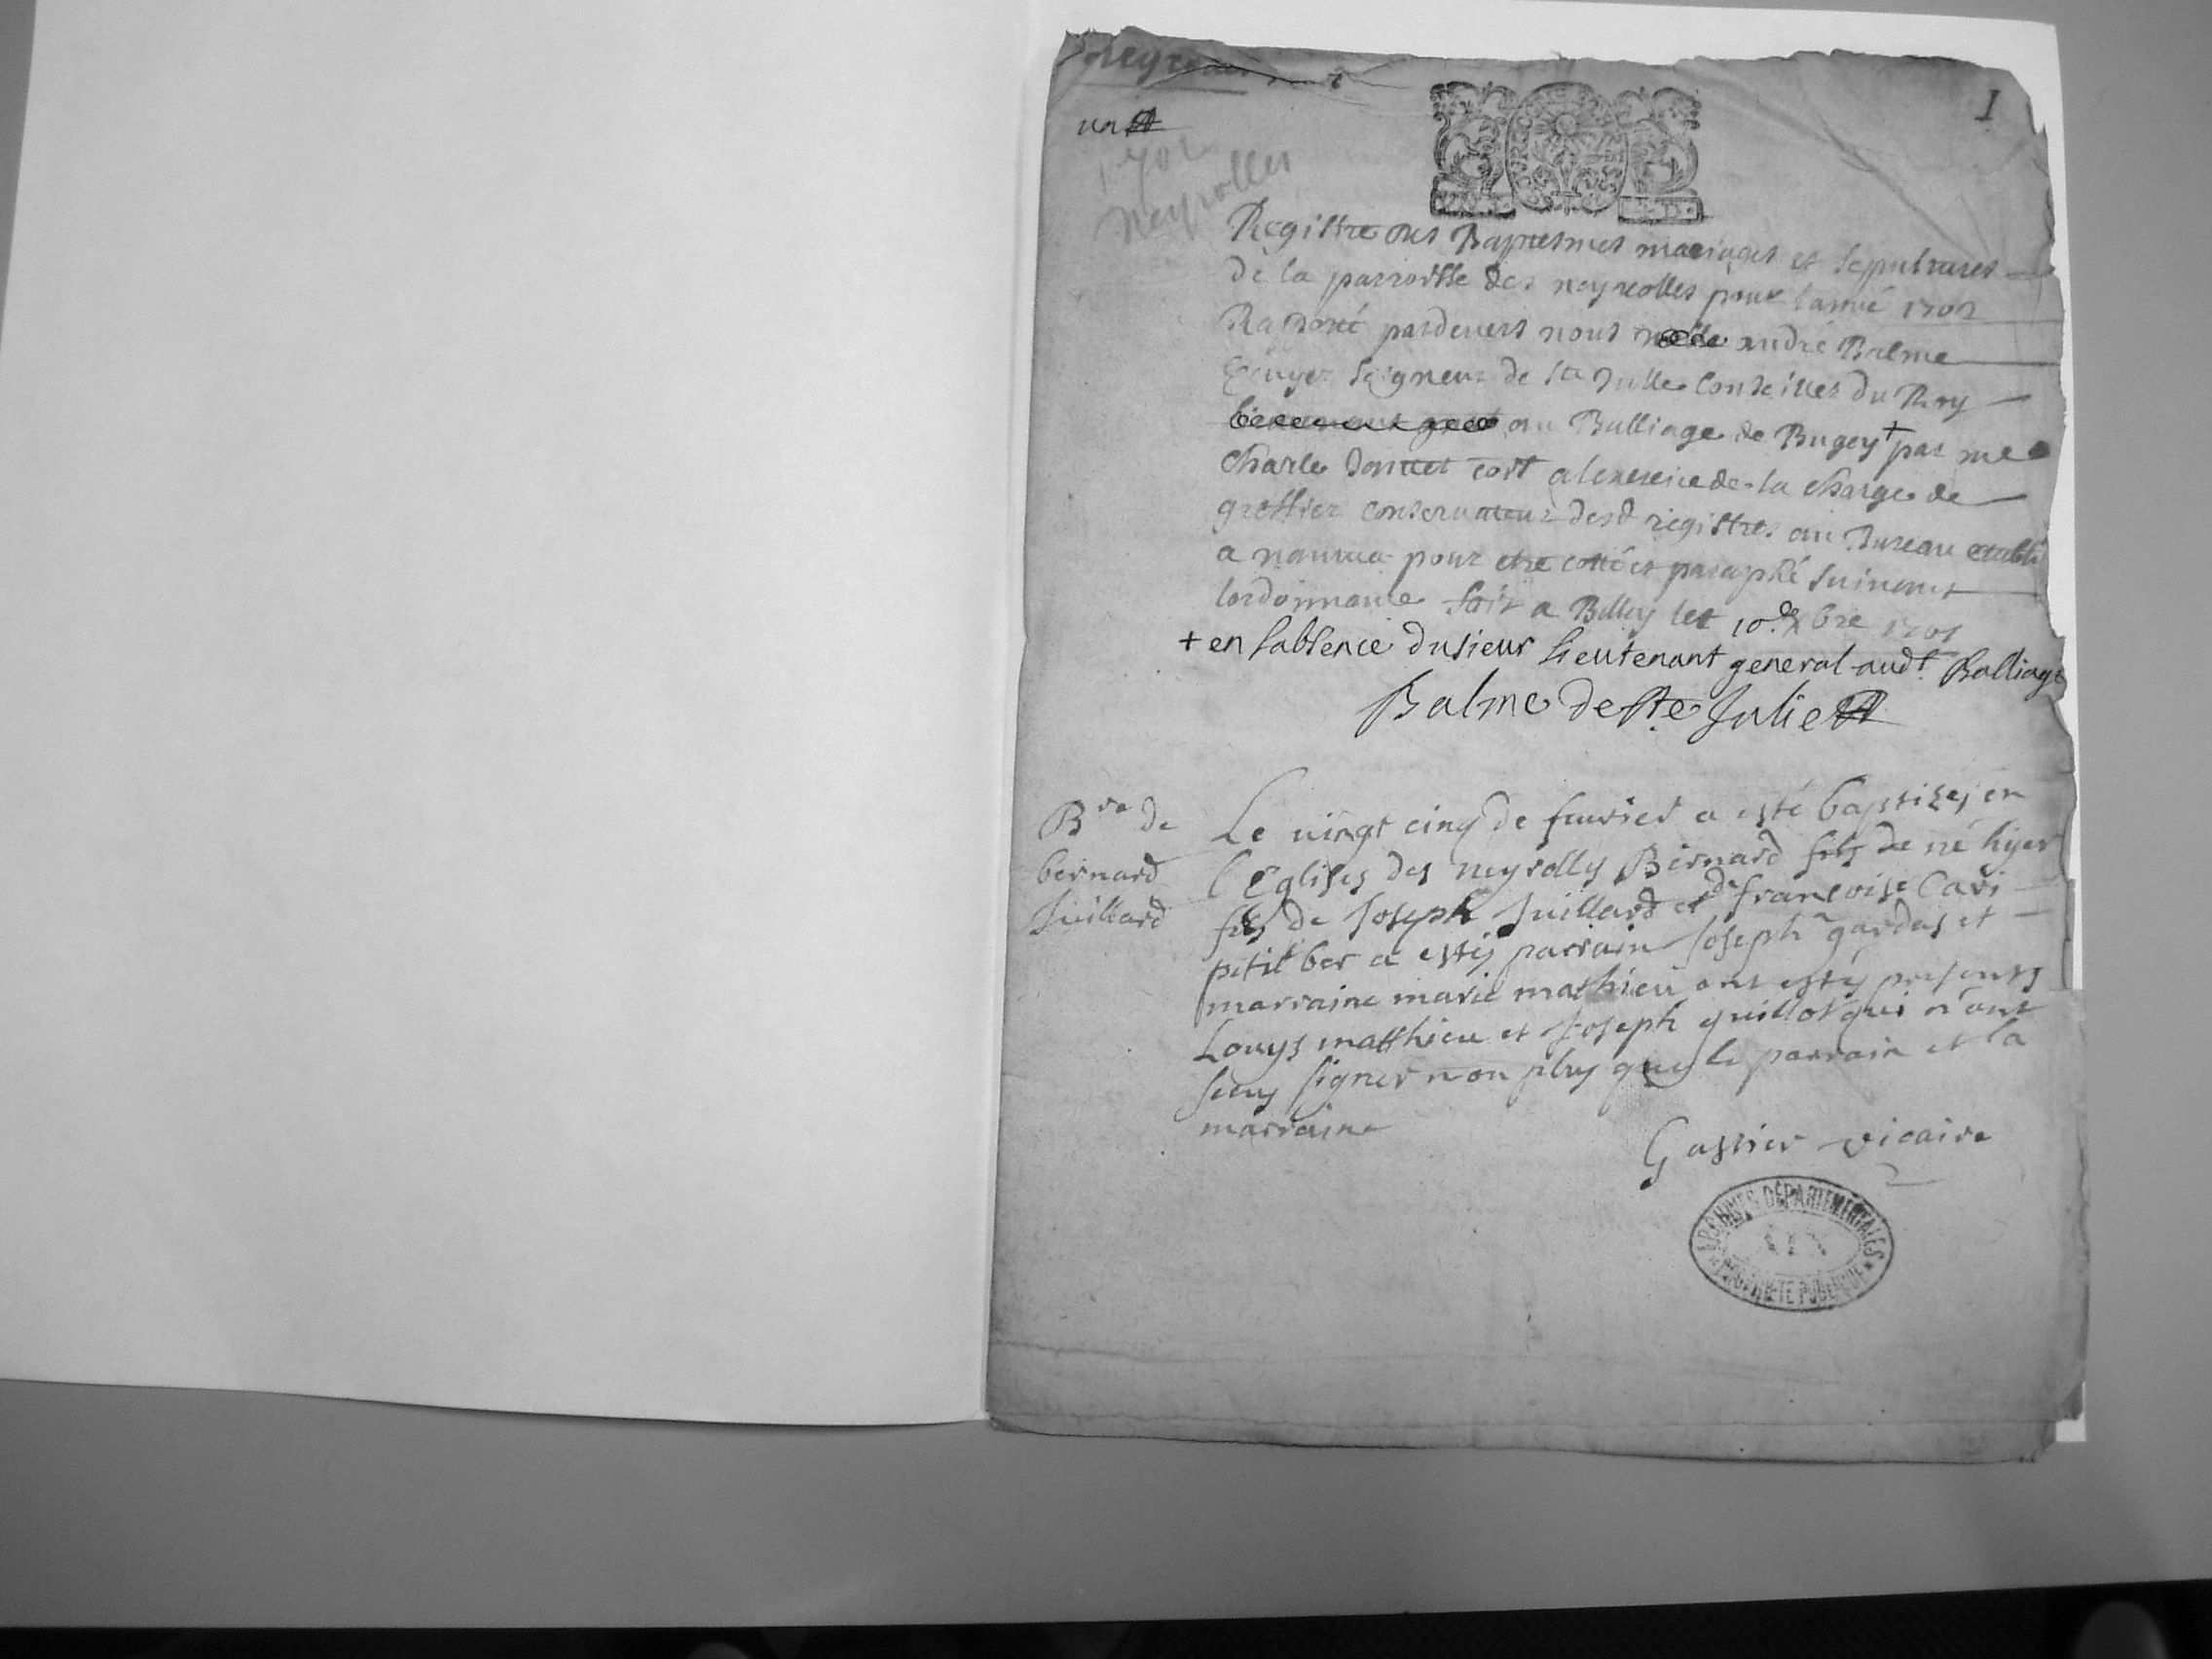 1
un
1702
Neyrolles
Registre des Baptesmes mariages et sepultures
de la parroisse des neyrolles pour lanné 1702
pardevers nous andré Balme
Ecuyer Seigneur de Ste Julle Conseiller du Roy
au Balliage de Bugey + par me
Charle a lexercice de la charge de
greffier conservateur desd registres au Bureau etabli
a nantua pour etre cotté et paraphé suivant
lordonnance fait a Belley le 10 bre 1701
+ en labsence du sieur lieutenant general audt Balliage
Balme de Ste Julie
Bme de
bernard
Juillard
Le vingt cinq de feuvrier a esté baptisey en
l'Eglises des neyrolles Bernard né hyer
fils de Joseph Juillard et de francoise Cari
petit ber a estéy parrain Joseph gardas et
marraine marie mathieu ont estéy presents
Louys matthieu et Joseph guillot qui n'ont
seeu signer non plus que le parrain et la
marraine
Gassier vicaire
ARCHIVES DÉPARTEMENTALES
AIN
PROPRIÉTÉ PUBLIQUE